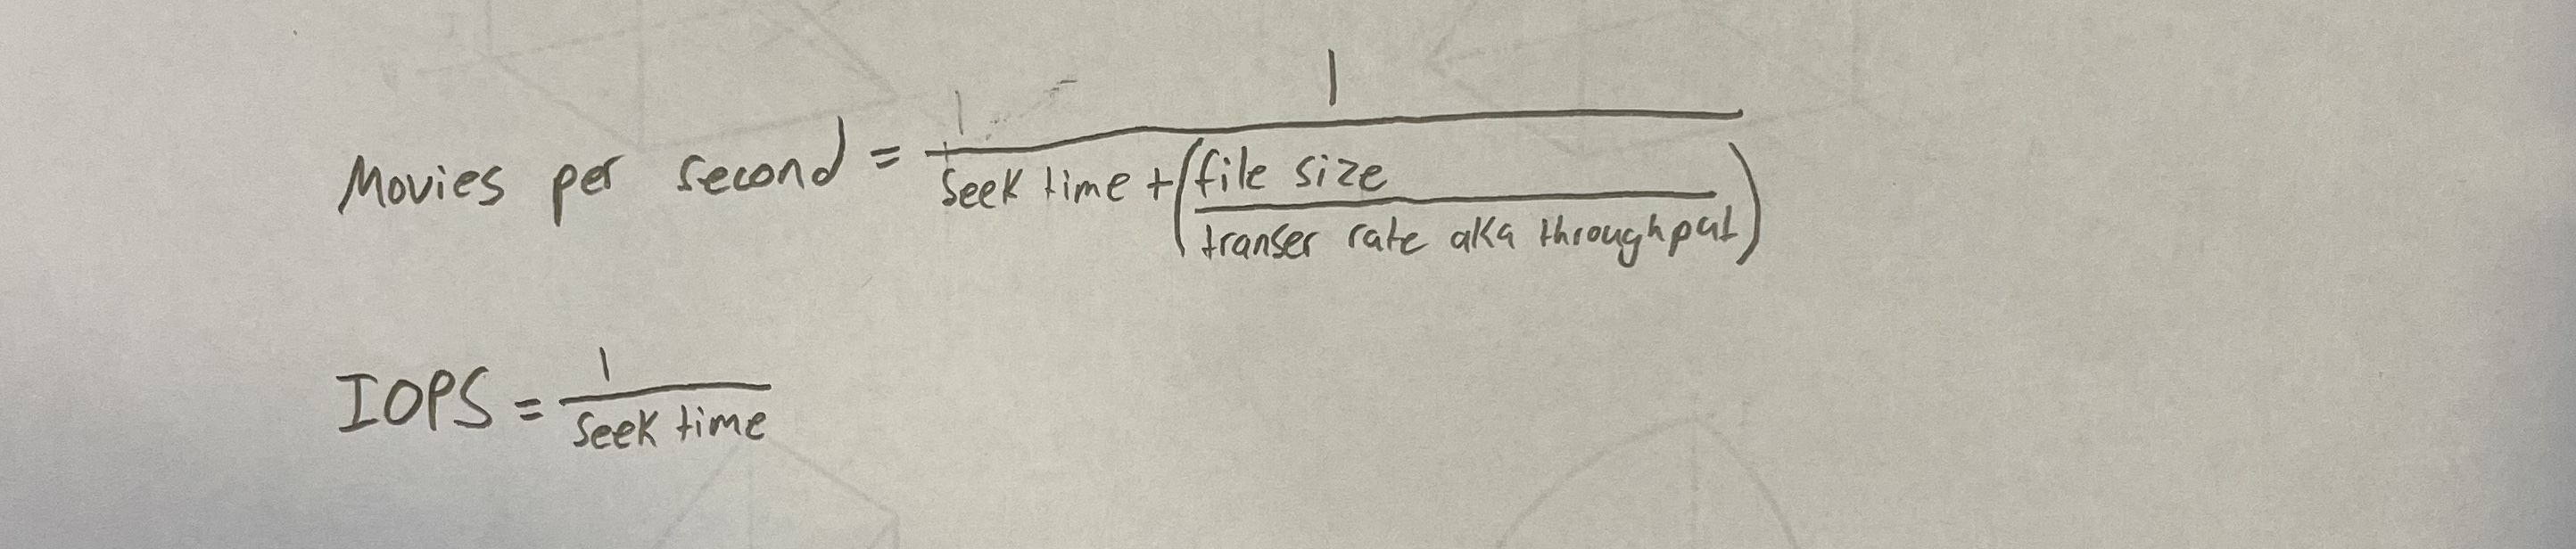 Movies per second = 1 / seek time + (file size / transer rate aka throughput)
IOPS = 1 / seek time